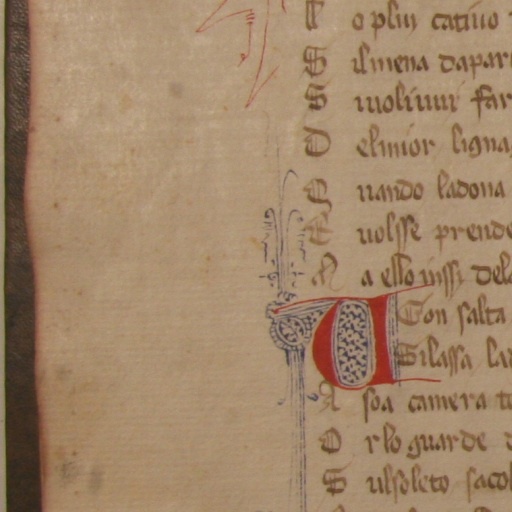 o plui cativo
S ilmena dapar
S uolivivi far
D elmior ligna
Q uando ladona
E uolsse prende
M a ello inssi del
U Con salta
Silassa la
A soa camera t
O r lo guarde d
S ulsoleto sacol